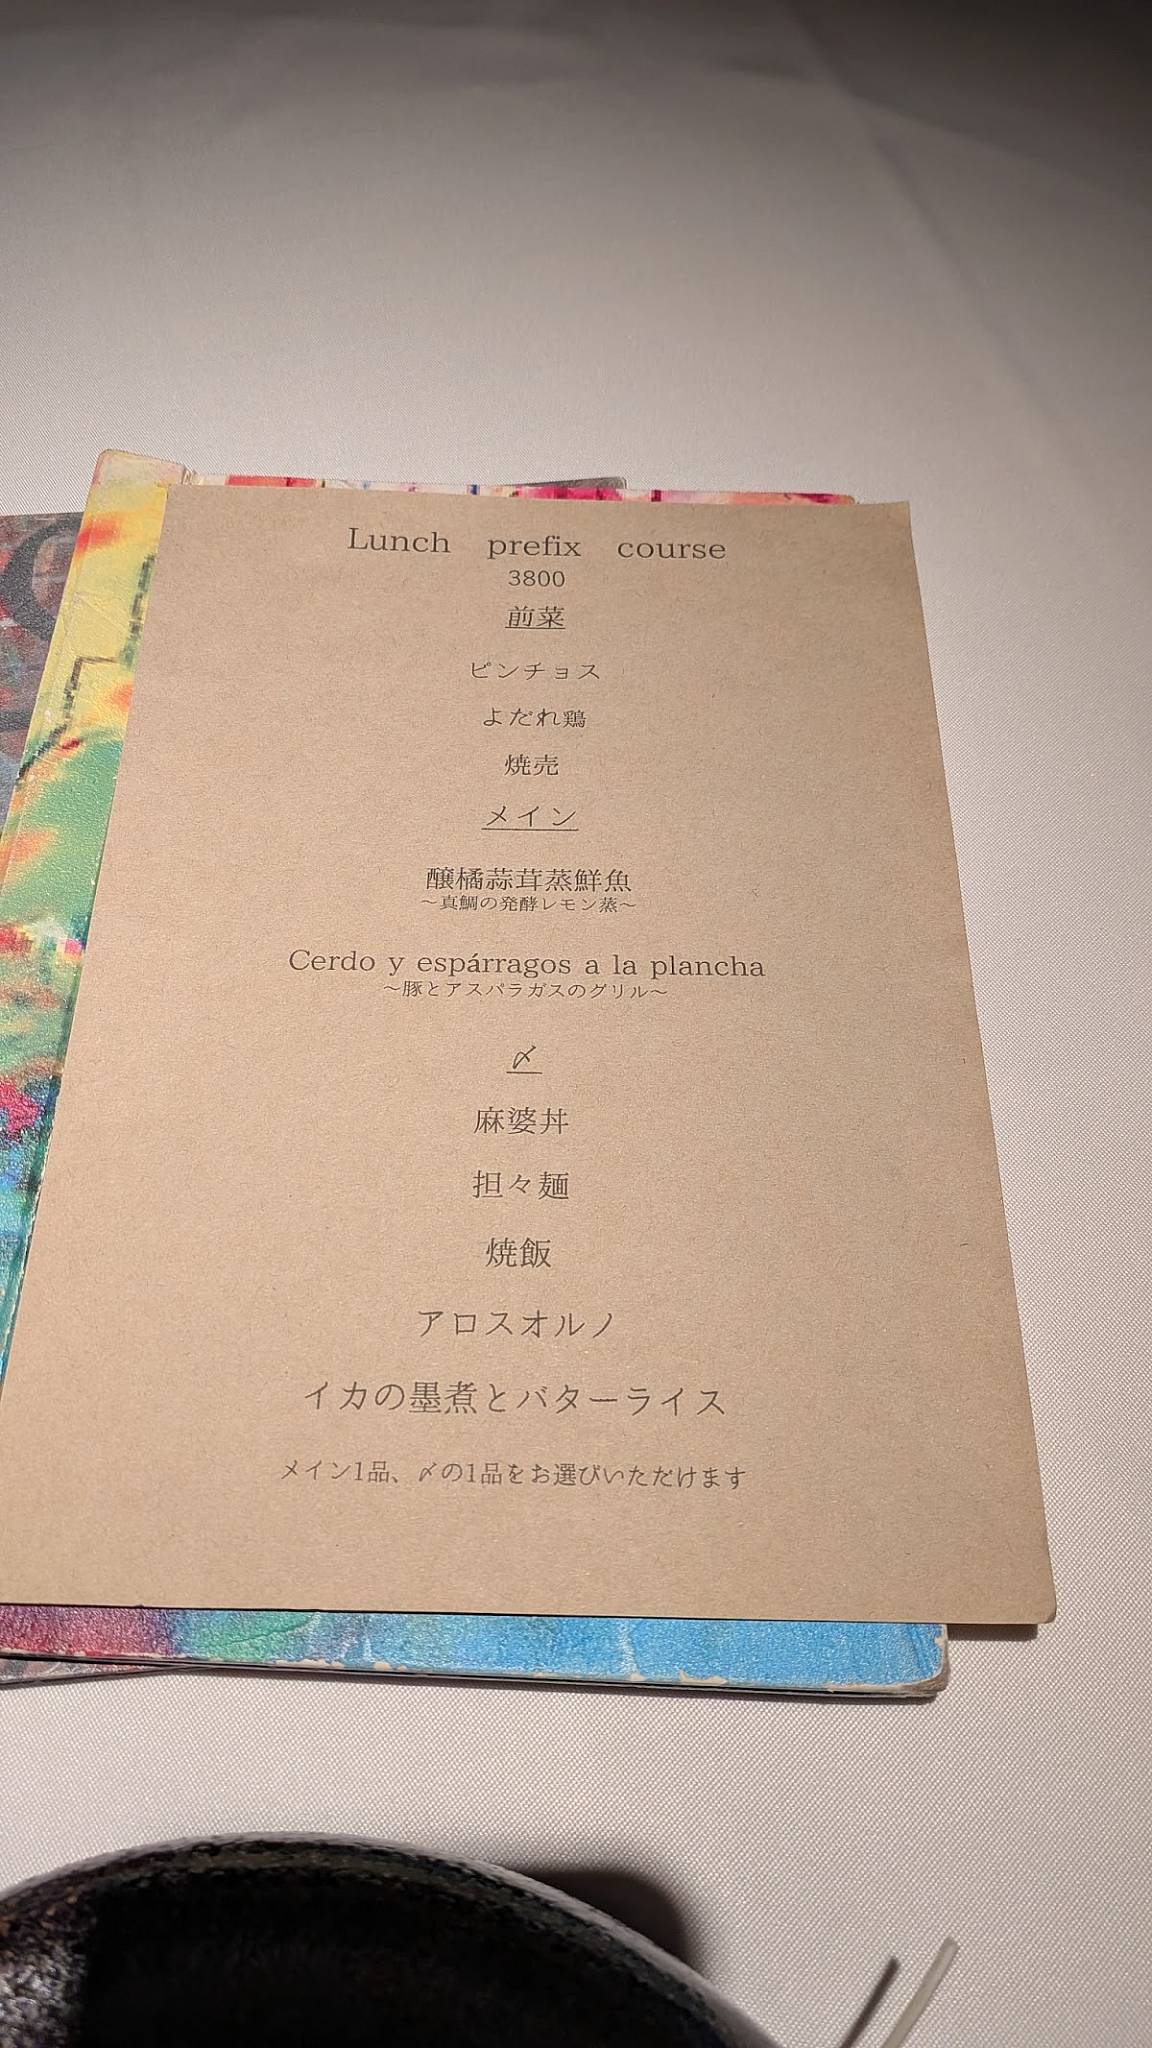 Lunch prefix course
3800
前菜
ピンチョス
よだれ鶏
焼売
メイン
醸橘蒜茸蒸鮮魚
～真鯛の発酵レモン蒸～
Cerdo y espárragos a la plancha
～豚とアスパラガスのグリル～
〆
麻婆丼
担々麺
焼飯
アロスオルノ
イカの墨煮とバターライス
メイン1品、〆の1品をお選びいただけます